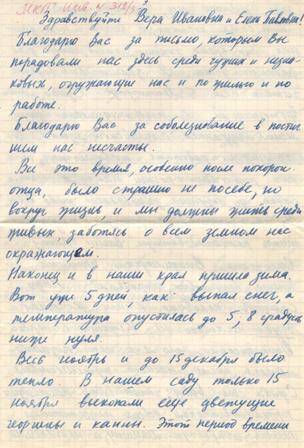 Здравствуйте Вера Ивановна и Елена Павловна!
Благодарю Вас за письмо, которым Вы
порадовали нас здесь среди чужих и незна-
комых, окружающих нас и по жилью и по
работе.
Благодарю Вас за соболезнование в постиг-
шем нас несчастьи.
Все это время, особенно после похорон
отца, было страшно не по себе, но
вокруг жизнь, и мы должны жить среди
живых, заботясь о всем земном нас
окражающем.
Наконец и в наши края пришла зима.
Вот уже 5 дней, как выпал снег, а
температура опустилась до 5, 8 градусов
ниже нуля.
Весь ноябрь и до 15 декабря было
тепло. В нашем саду только 15
ноября выкопали еще цветущие
георгины и канны. Этот период времени